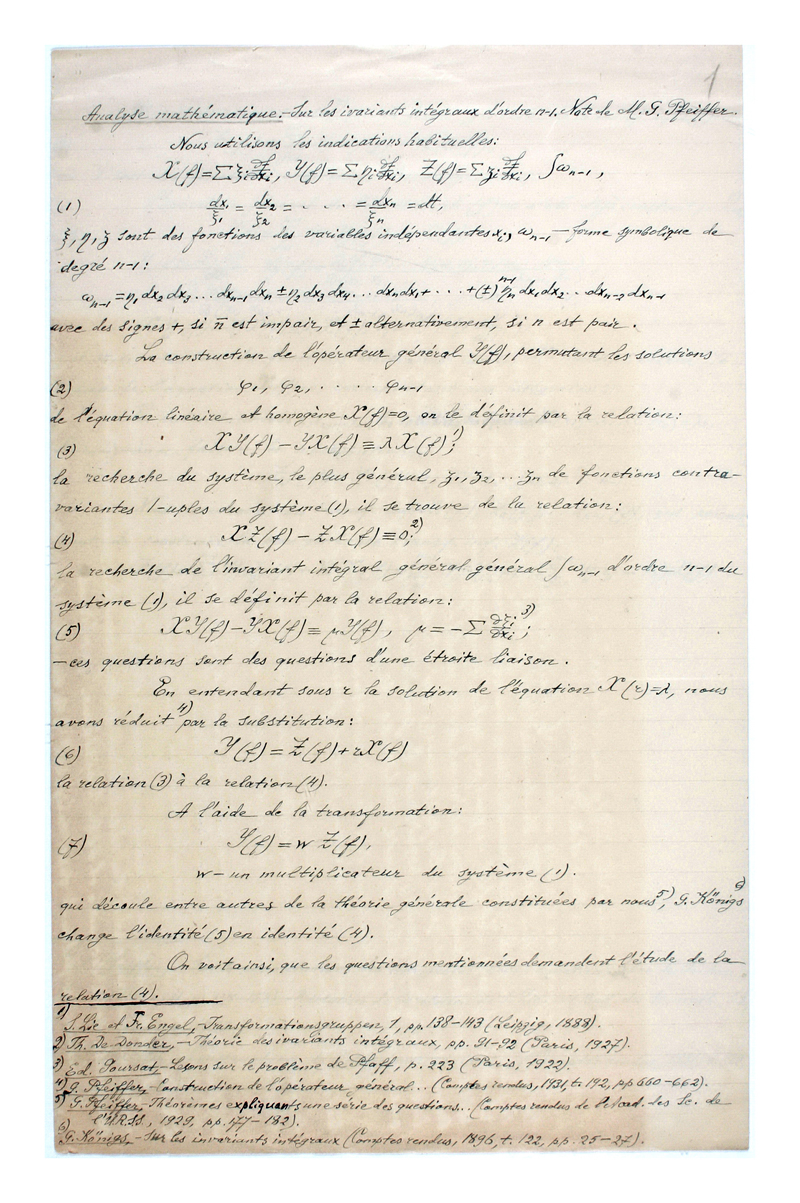 1
Analyse mathématique.-Sur les ivariants intégraux d'ordre n-1. Note de M. G. Pfeiffer.
Nous utilisons les indications habituelles:
X(f)=∑ξi ∂f/∂xi, Y(f)=∑ηi ∂f/∂xi, Z(f)=∑ʒi ∂f/∂xi, ∫ωn-1,
(1) dx1/ξ1 = dx2/ξ2 = . . . = dxn/ξn = dt,
ξ, η, ʒ sont des fonctions des variables indépendantes xi, ωn-1 — forme symbolique de
degré n-1:
ωn-1 = η1 dx2 dx3 ... dxn-1 dxn ± η2 dx3 dx4 ... dxn dx1 + · · · + (±)^n-1 ηn dx1 dx2 .. dxn-2 dxn-1
avec des signes +, si n est impair, et ± alternativement, si n est pair.
La construction de l'opérateur général Y(f), permutant les solutions
(2) φ1, φ2, · · · · φn-1
de l'équation linéaire et homogène X(f)=0, on le définit par la relation:
(3) XY(f) – YX(f) ≡ λX(f)1);
la recherche du système, le plus général, ʒ1, ʒ2, ... ʒn de fonctions contra-
variantes 1-uples du système (1), il se trouve de la relation:
(4) XZ(f) – ZX(f) ≡ 0;2)
la recherche de l'invariant intégral général général ∫ωn-1 d'ordre n-1 du
système (1), il se définit par la relation:
(5) XY(f)–YX(f) ≡ μY(f), μ = –∑ ∂ξi/∂xi 3);
— ces questions sont des questions d'une étroite liaison.
En entendant sous r la solution de l'équation X(r)=λ, nous
avons réduit4) par la substitution:
(6) Y(f) = Z(f)+rX(f)
la relation (3) à la relation (4).
A l'aide de la transformation:
(7) Y(f) = w Z(f),
w – un multiplicateur du système (1).
qui découle entre autres de la théorie générale constituées par nous5), G. Königs6)
change l'identité (5) en identité (4).
On voit ainsi, que les questions mentionnées demandent l'étude de la
relation (4).
1) S. Lie et Fr. Engel,-Transformationsgruppen, 1, pp. 138–143 (Leipzig, 1888).
2) Th. De Donder,-Théorie des ivariants intégraux, pp. 91–92 (Paris, 1927).
3) Ed. Goursat,-Leçons sur le problème de Pfaff, p. 223 (Paris, 1922).
4) G. Pfeiffer,-Construction de l'opérateur général.. (Comptes rendus, 1931, t. 192, pp 660–662).
5) G. Pfeiffer,-Théorèmes expliquants une série des questions.. (Comptes rendus de l'Acad. des Sc. de
l'URSS, 1929, pp. 177–182).
6) G. Königs,-Sur les invariants intégraux (Comptes rendus, 1896, t. 122, pp. 25–27).